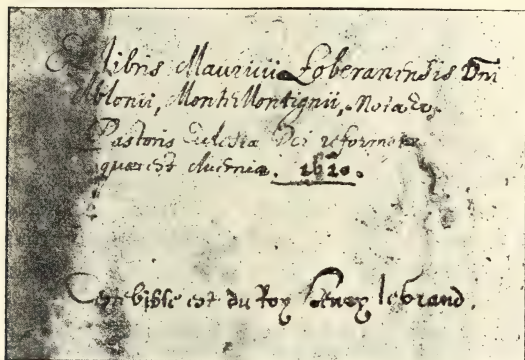 Ex libris Mauricii Loberanensis Dni
Ablonii, MontiMontignii, Nota &
Pastoris Eclesiæ Dei reformatæ
quæ est 1620.
Cette bible est du Roy Henry le Grand.